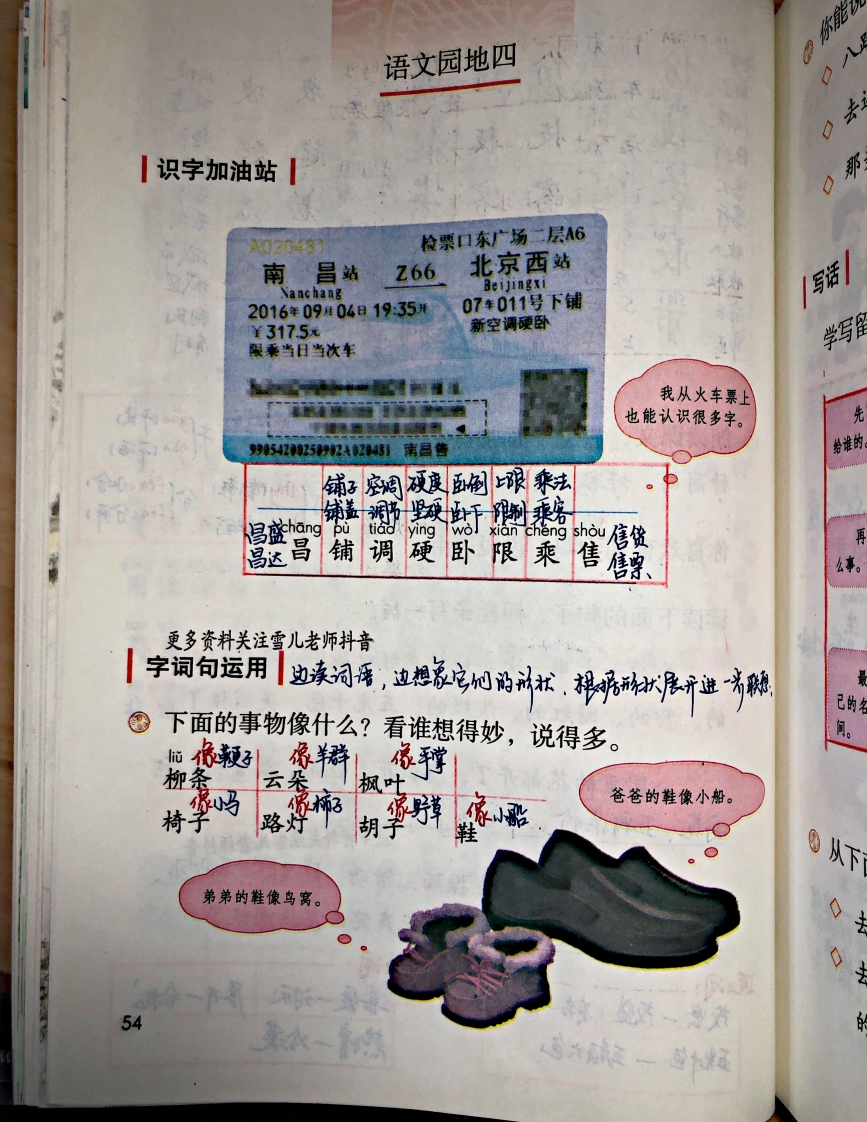 语文园地四
识字加油站
A020481 检票口东广场二层A6
南昌站 Z66 北京西站
Nanchang Beijingxi
2016年09月04日 19:35开 07车011号下铺
￥317.5元 新空调硬卧
限乘当日当次车
99054200250902A020481 南昌售
我从火车票上
也能认识很多字。
铺子 空调 硬度 卧倒 上限 乘法
铺盖 调节 坚硬 卧下 限制 乘客
昌盛 chāng pù tiáo yìng wò xiàn chéng shòu 售货
昌达 昌 铺 调 硬 卧 限 乘 售 售票
更多资料关注雪儿老师抖音
字词句运用 边读词语，边想象它们的形状，根据形状展开进一步联想。
下面的事物像什么？看谁想得妙，说得多。
liǔ 像鞭子 像羊群 像手掌
柳条 云朵 枫叶
像小马 像柿子 像野草 像小船
椅子 路灯 胡子 鞋
爸爸的鞋像小船。
弟弟的鞋像鸟窝。
54
你能说
八路
去
那
写话
学写留
先
给谁的。
再
么事。
最
己的名
间。
从下面
去
去
的